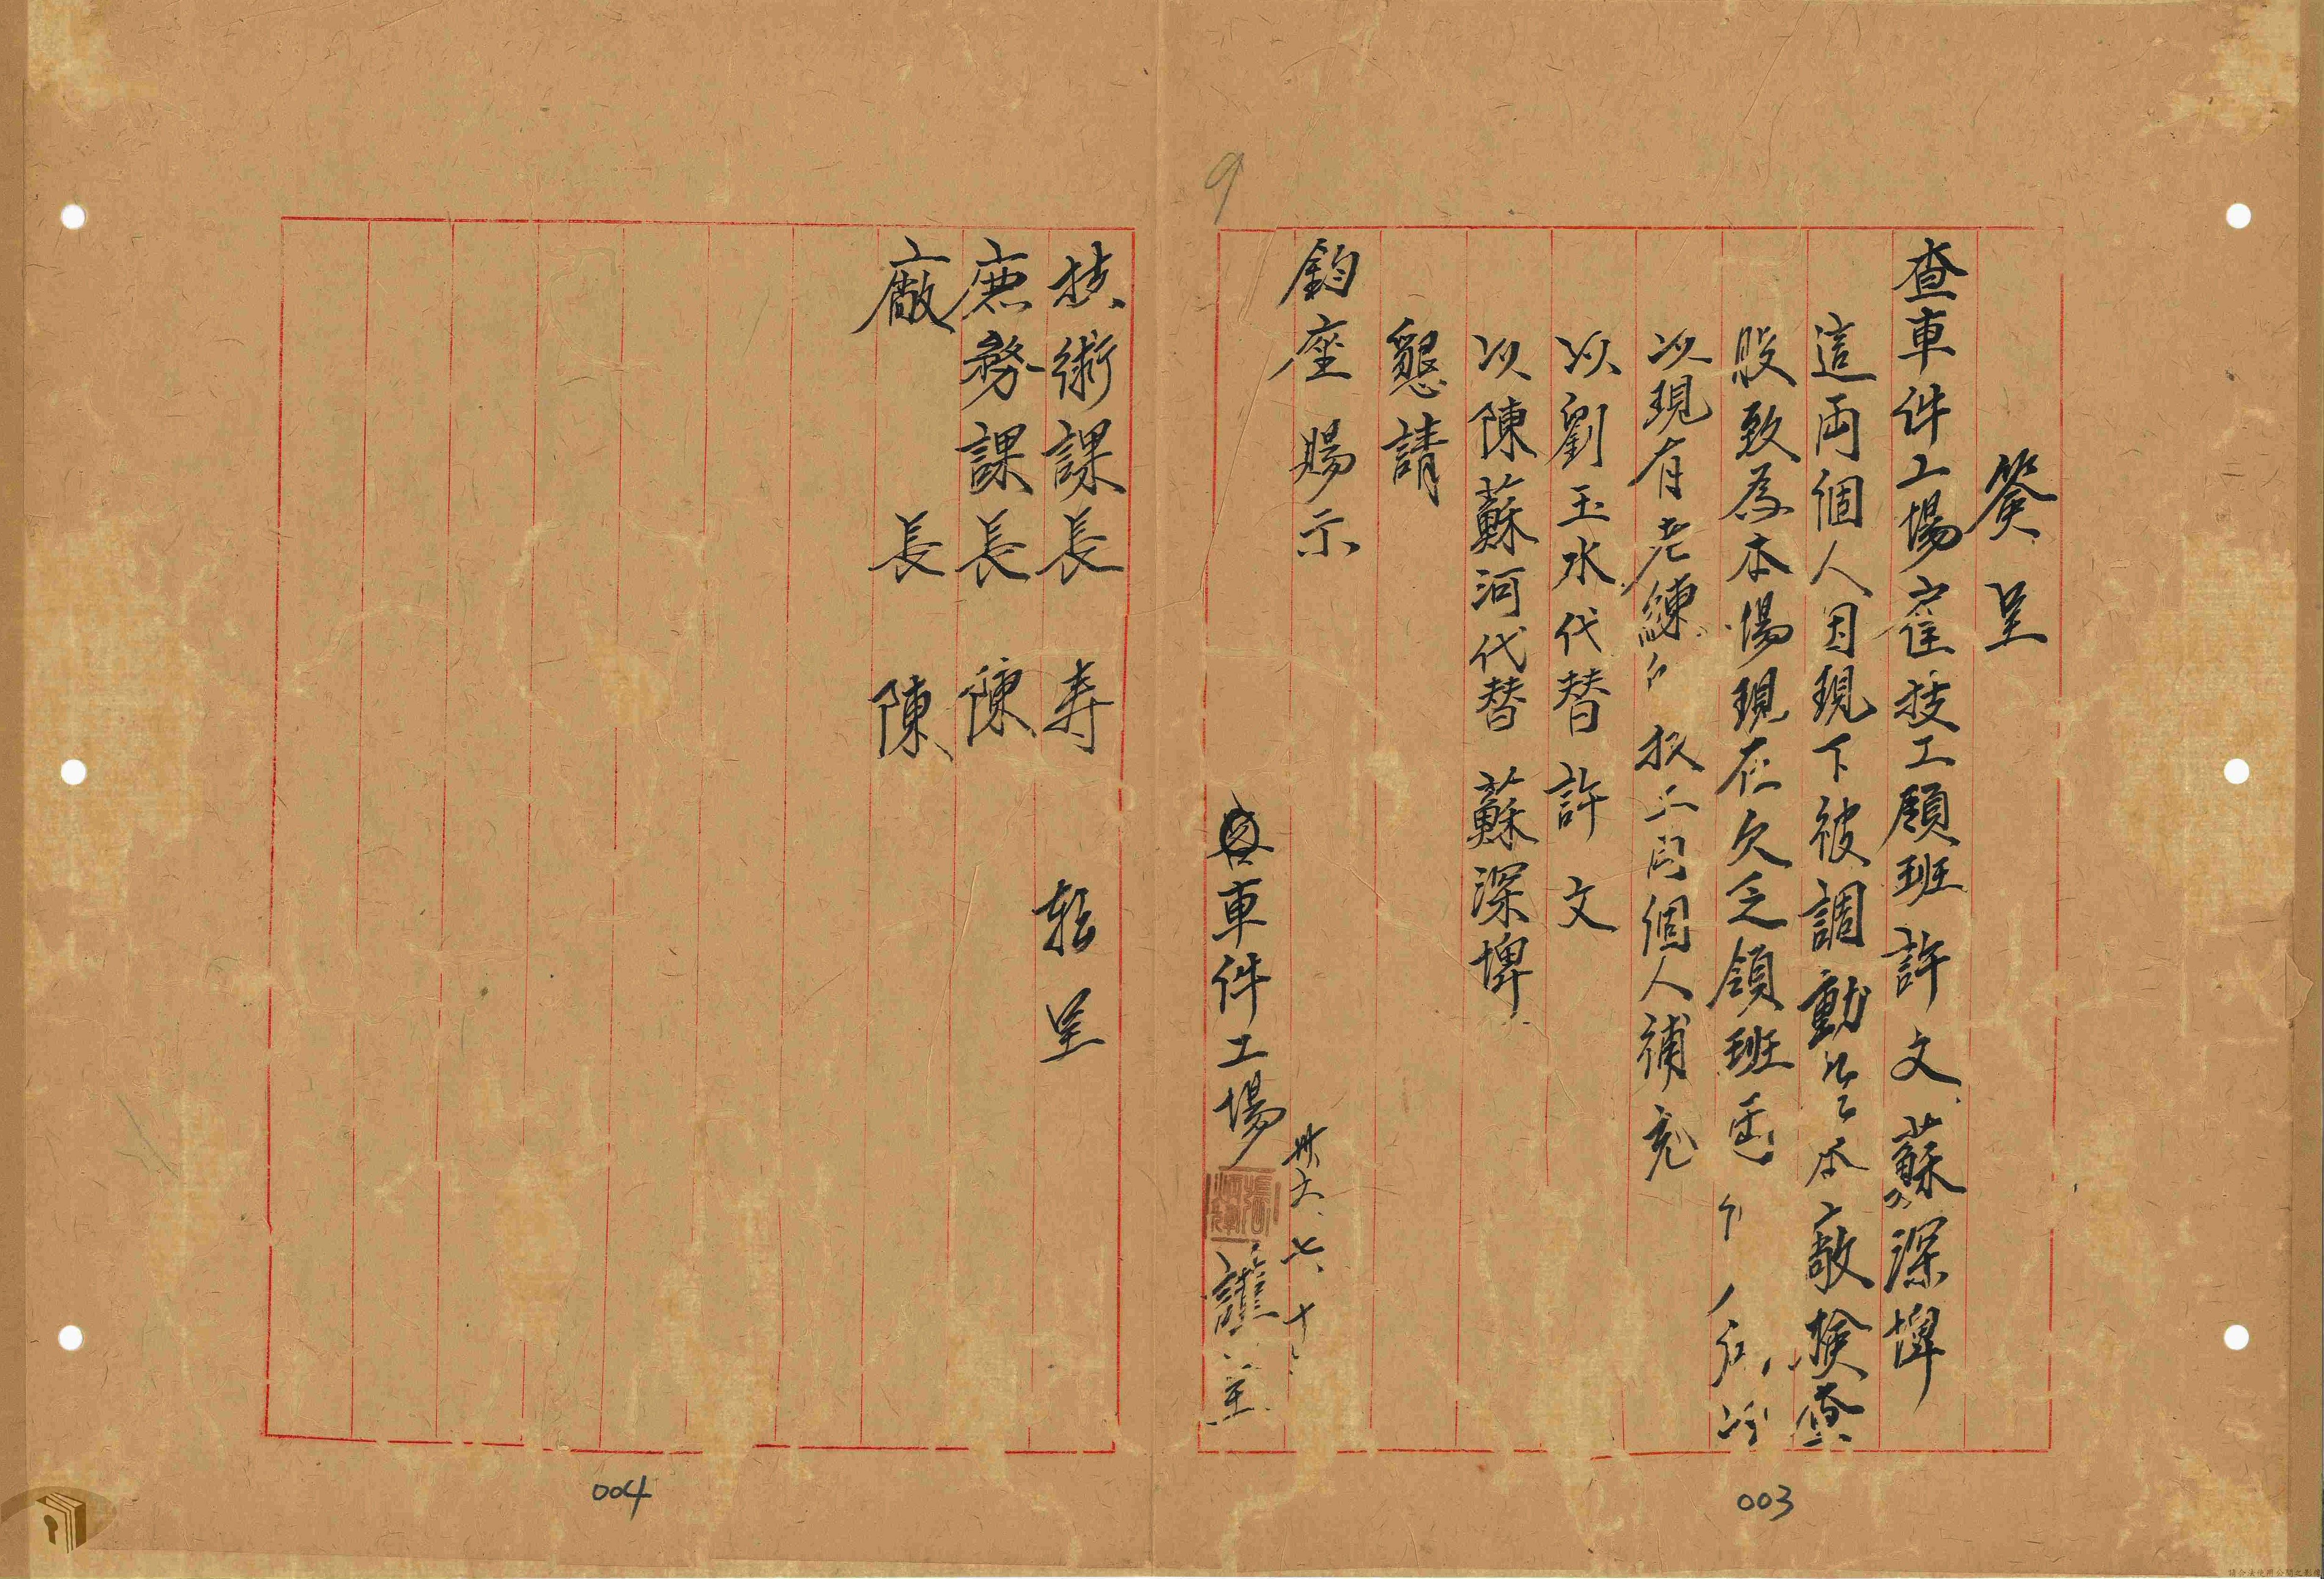 簽呈
查車件工場雇技工領班許文蘇深埤
這両個人因現下被調動本廠檢查
股致為本場現在欠乏領班
以現有老練個人補充
以劉玉水代替許文
以陳蘇河代替蘇深埤
懇請
鈞座賜示
卅六、七、十
車件工場
謹呈
技術課長 寿 轉呈
庶務課長 陳
廠長 陳
9
003
004